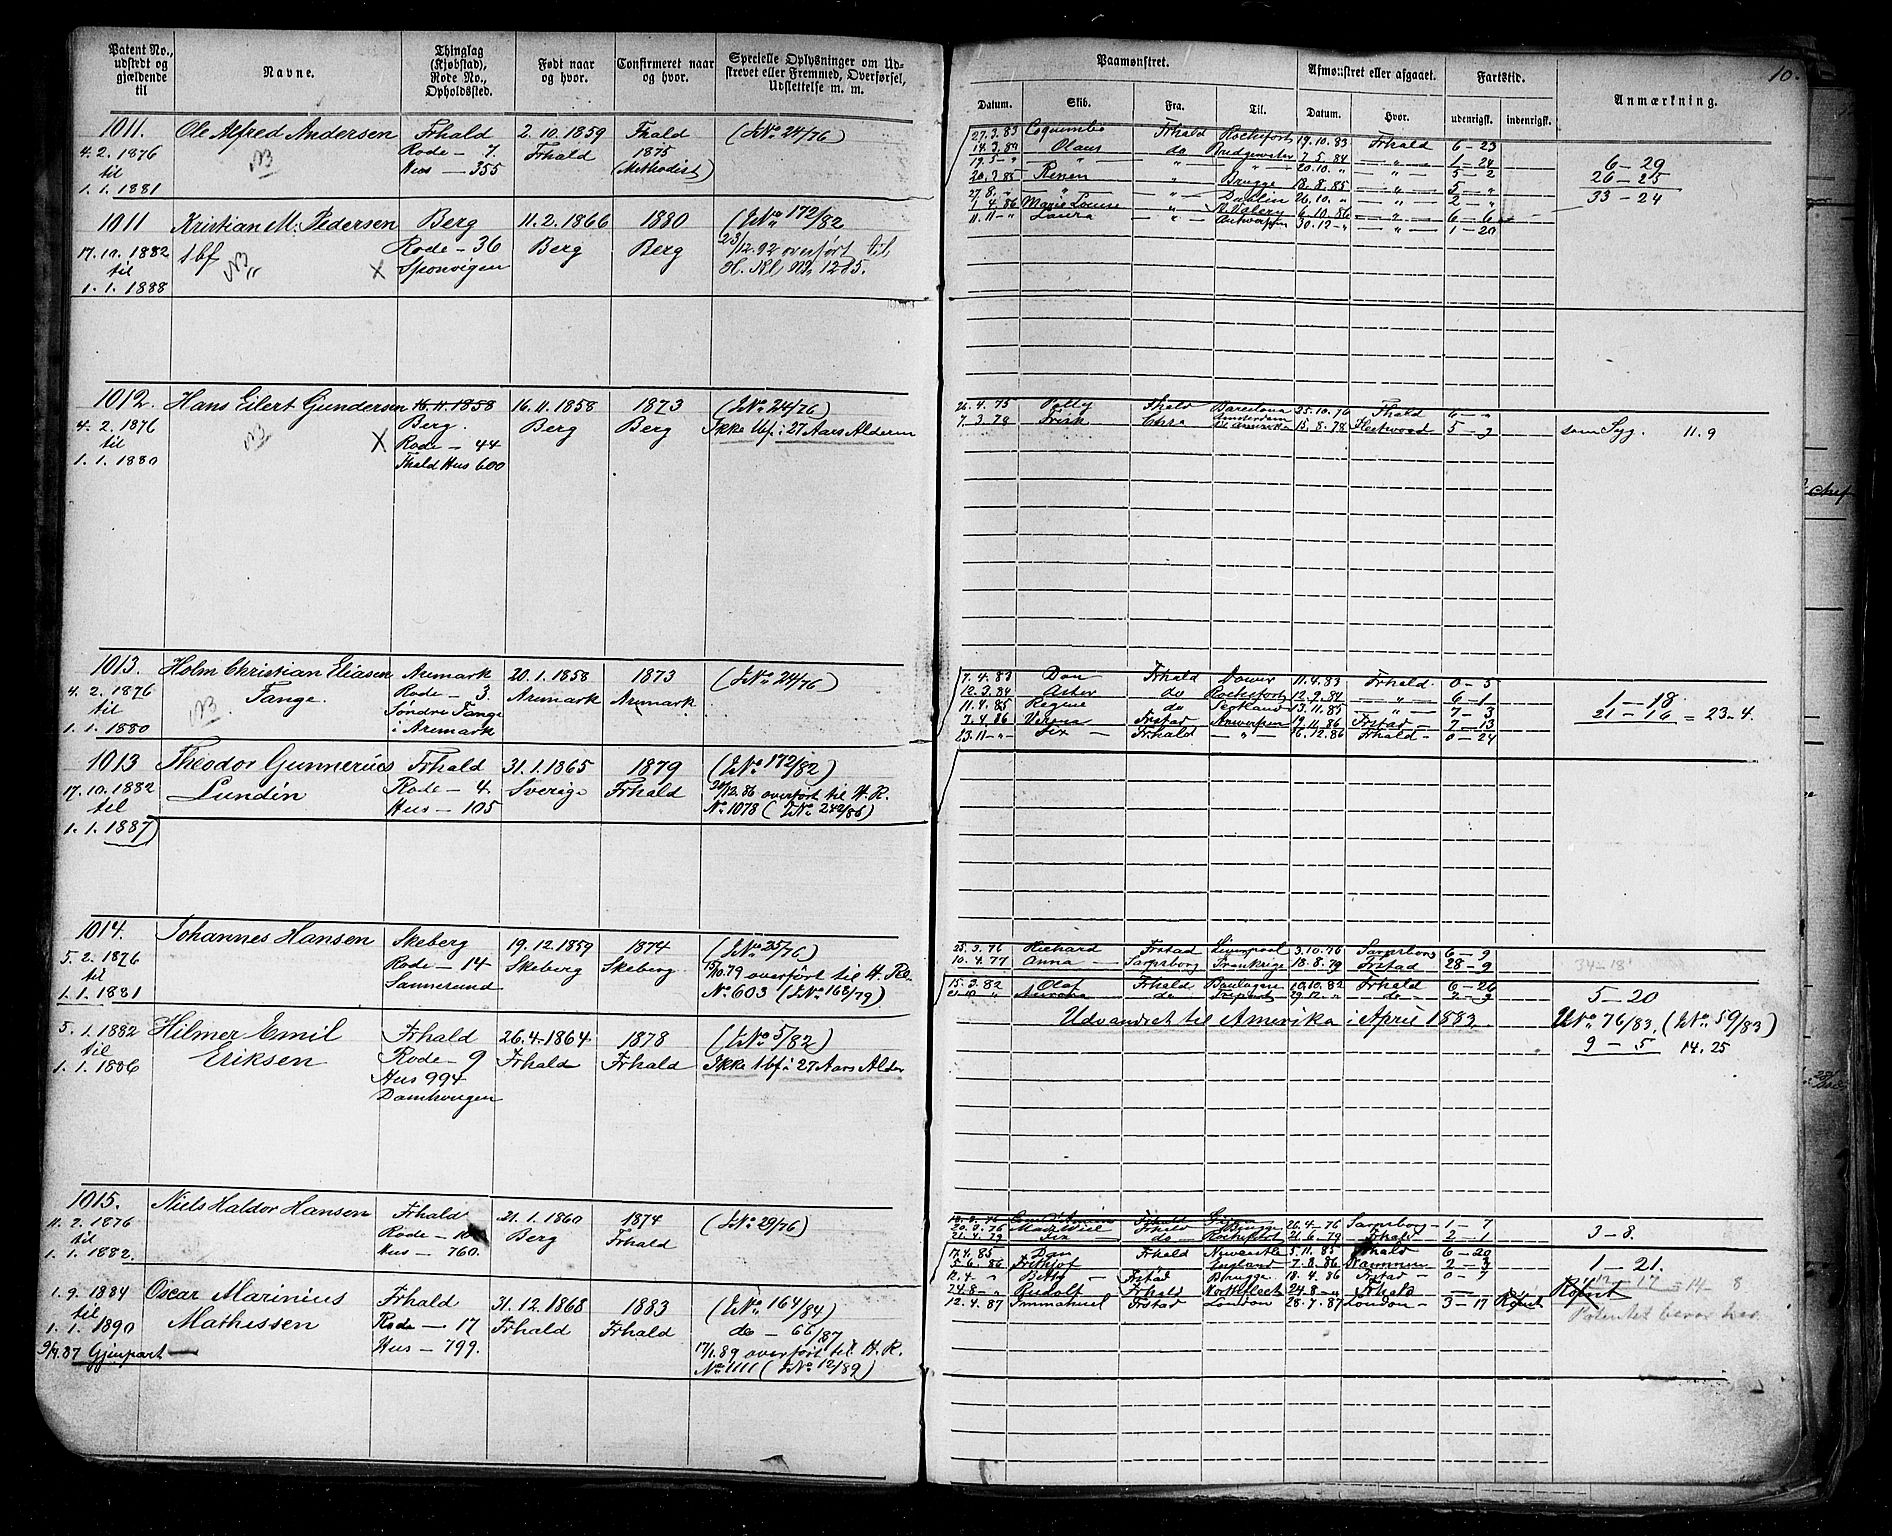 Patent No., udstedt og gjældende til
Navne.
Thinglag (Kjøbstad), Rode No., Opholdssted.
Født naar og hvor.
Confirmeret naar og hvor.
Specielle Oplysninger om Udskrevet eller Fremmed, Overførsel, Udslettelse m. m.
1011.
4. 2. 1876
til
1. 1. 1881
Ole Alfred Andersen
Frhald
Rode - 7
Hus - 355
2. 10. 1859
Frhald
Fhald
1875
(Methodist)
(J.No. 24/76)
1011
17. 10. 1882
til
1. 1. 1888
Kristian M. Pedersen
1bf
Berg
Rode - 36
Sponvigen
11. 2. 1866
Berg
1880
Berg
(J.No. 172/82
23/12. 92 overført til
H. Rl No. 1285.
1012.
4. 2. 1876
til
1. 1. 1880
Hans Eilert Gundersen
16. 11. 1858
Berg.
Rode - 44
Fhald Hus 600
16. 11. 1858
Berg
1873
Berg
(J.No. 24/76)
Ikke 1bf. i 27 Aars Alderen
1013.
4. 2. 1876
til
1. 1. 1880
Holm Christian Eliasen
Tange.
Aremark
Rode - 3.
Søndre Tange
i Aremark
20. 1. 1858
Aremark
1873
Aremark
(J.No. 24/76)
1013
17. 10. 1882
til
1. 1. 1887)
Theodor Gunnerius
Lundin
Frhald
Rode - 4.
Hus - 105
31. 1. 1865
Sverige
1879
Frhald
(J.No. 172/82)
20/12. 86 overført til H. R.
No. 1078 (J.No. 242/86)
1014.
5. 2. 1876
til
1. 1. 1881
Johannes Hansen
Skeberg
Rode - 14
Sannesund
19. 12. 1859
Skeberg
1874
Skeberg
(J.No. 25/76)
15/10. 79 overført til H. Rl.
No. 603 (J.No. 168/79)
5. 1. 1882
til
1. 1. 1886
Hilmer Emil
Eriksen
Frhald
Rode - 9
Hus 994
Damhaugen
26. 4. 1864
Frhald
1878
Frhald
(J.No. 5/82)
Ikke 1bf i 27 Aars Alder
1015.
11. 2. 1876
til
1. 1. 1882.
Niels Haldor Hansen
Frhald
Rode - 10
Hus - 760.
21. 1. 1860
Berg
1874
Frhald
(J.No. 29/76)
1. 9. 1884
til
1. 1. 1890
9/9. 87 Gjenpart
Oscar Marinius
Mathissen
Frhald
Rode - 17
Hus - 799.
31. 12. 1868
Frhald
1883
Frhald
(J.No. 164/84)
do - 66/87
17/1. 89 overført til H. R.
No. 1111 (J.No. 12/89)
10.
Paamønstret.
Afmønstret eller afgaaet.
Fartstid.
Anmærkning.
Datum. Skib. Fra. Til. Datum. Hvor. udenrigst. indenrigst.
27. 3. 83 Coquimbo Frhald Rochefort 19. 10. 83 Frhald 6 - 23
14. 3. 84 Olaus do Bridgewater 7. 5. 84 " 1 - 24
19. 5 - " " " " 20. 10. " " 5 - 2
20. 3. 85 Renen " Brugge 18. 8. 85 " 5 - "
27. 8. " " " 26. 10. " " 2 - "
1. 4. 86 Marie Louise " 6. 10. 86 " 6 - 6
11. 11 - " Laura " Antwerpen 30. 12 - " " 1 - 20
6 - 29
26 - 25
33 - 24
26. 4. 75 Polly Fhald Barcelona 25. 10. 76 Fhald 6 - "
7. 3. 78 Frisk Amsterdam 15. 8. 78 Fleetwood 5 - 9
som Syg. 11. 9
7. 4. 83 Don Frhald Dover 11. 4. 83 Frhald 0 - 5
12. 3. 84 Aster do Rochefort 12. 9. 84 " 6 - 1
11. 4. 85 Regine do Skotland 13. 11. 85 " 7 - 3
7. 4. 86 Frstad Antwerpen 19. 11. 86 Frstad 7 - 13
23. 11 - " Six Frhald " 16. 12. 86 Frhald 0 - 24
1 - 18
21 - 16 = 23 - 4.
25. 3. 76 Richard Frstad Liverpool 3. 10. 76 Sarpsborg 6 - 9
10. 4. 77 Anna Sarpsborg Frankrige 18. 8. 79 Frstad 28 - 9
34 - 18
15. 3. 82 Olaf Frhald Boulogne 10. 10. 82 Frhald 6 - 26
Aurora do 29. 12. " do
5 - 20
Udvandret til Amerika i April 1883.
UNo. 76/83, (J.No. 59/83)
9 - 5 14. 25
20. 3. 76 Frhald Brugge 26. 4 - 76 Sarpsborg 1 - 7
21. 4. 79 Six do Rochefort 21. 6. 79 Frhald 2 - 1
3 - 8.
17. 4. 85 Dan Frhald Newcastle 5. 11. 85 Fhald 6 - 20
5. 6. 86 Frithjof England 7. 8. 86 Drammen 2 - 3
12. 4 - " Betty Frstad Brugge 18. 4. 86 Frstad 0 - 7
24. 8 - " Rudolf Frhald Northfleet 24. 8 - " Frhald
12. 4. 87 Immanuel Frstad London 28. 7. 87 London 3 - 17 Rømt
1 - 21.
Rømt
12 - 17 = 14 - 8